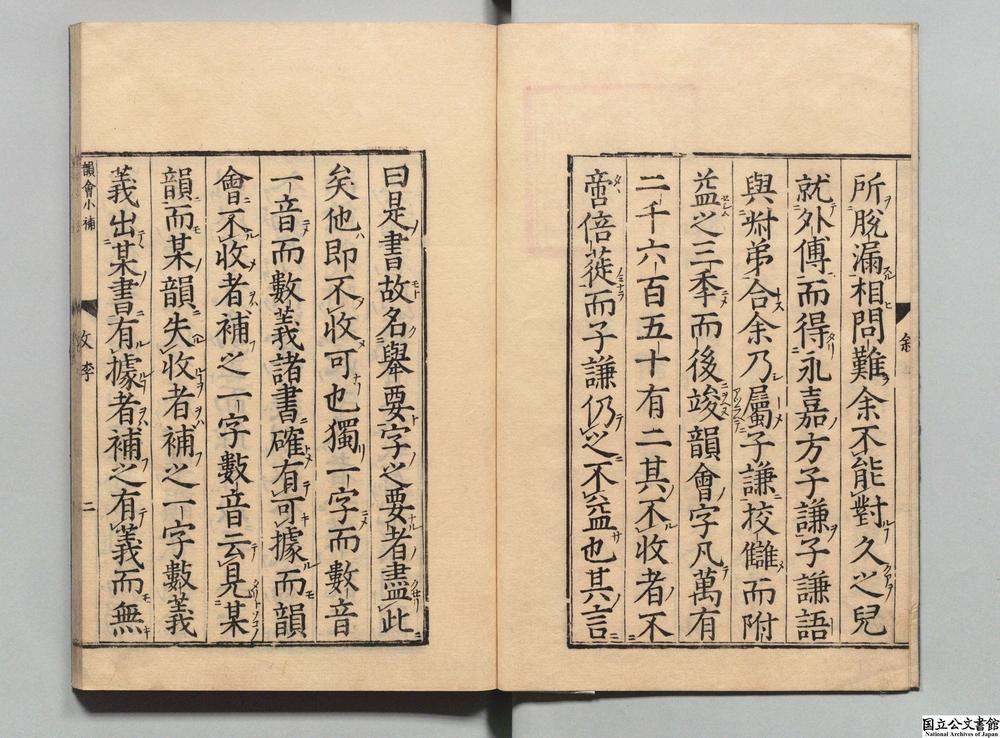 所脫漏相問難余不能對久之兒
就外傅而得永嘉方子謙子謙語
與煭弟合余乃屬子謙挍讎而附
益之三秊而後竣韻會字凡萬有
二千六百五十有二其不收者不
啻倍蓰而子謙仍之不益也其言
曰是書故名舉要字之要者盡此
矣他即不收可也獨一字而數音
一音而數義諸書確有可據而韻
會不收者補之一字數音云見某
韻而某韻失收者補之一字數義
義出某書有據者補之有義而無
韻會小補
二
国立公文書館
National Archives of Japan